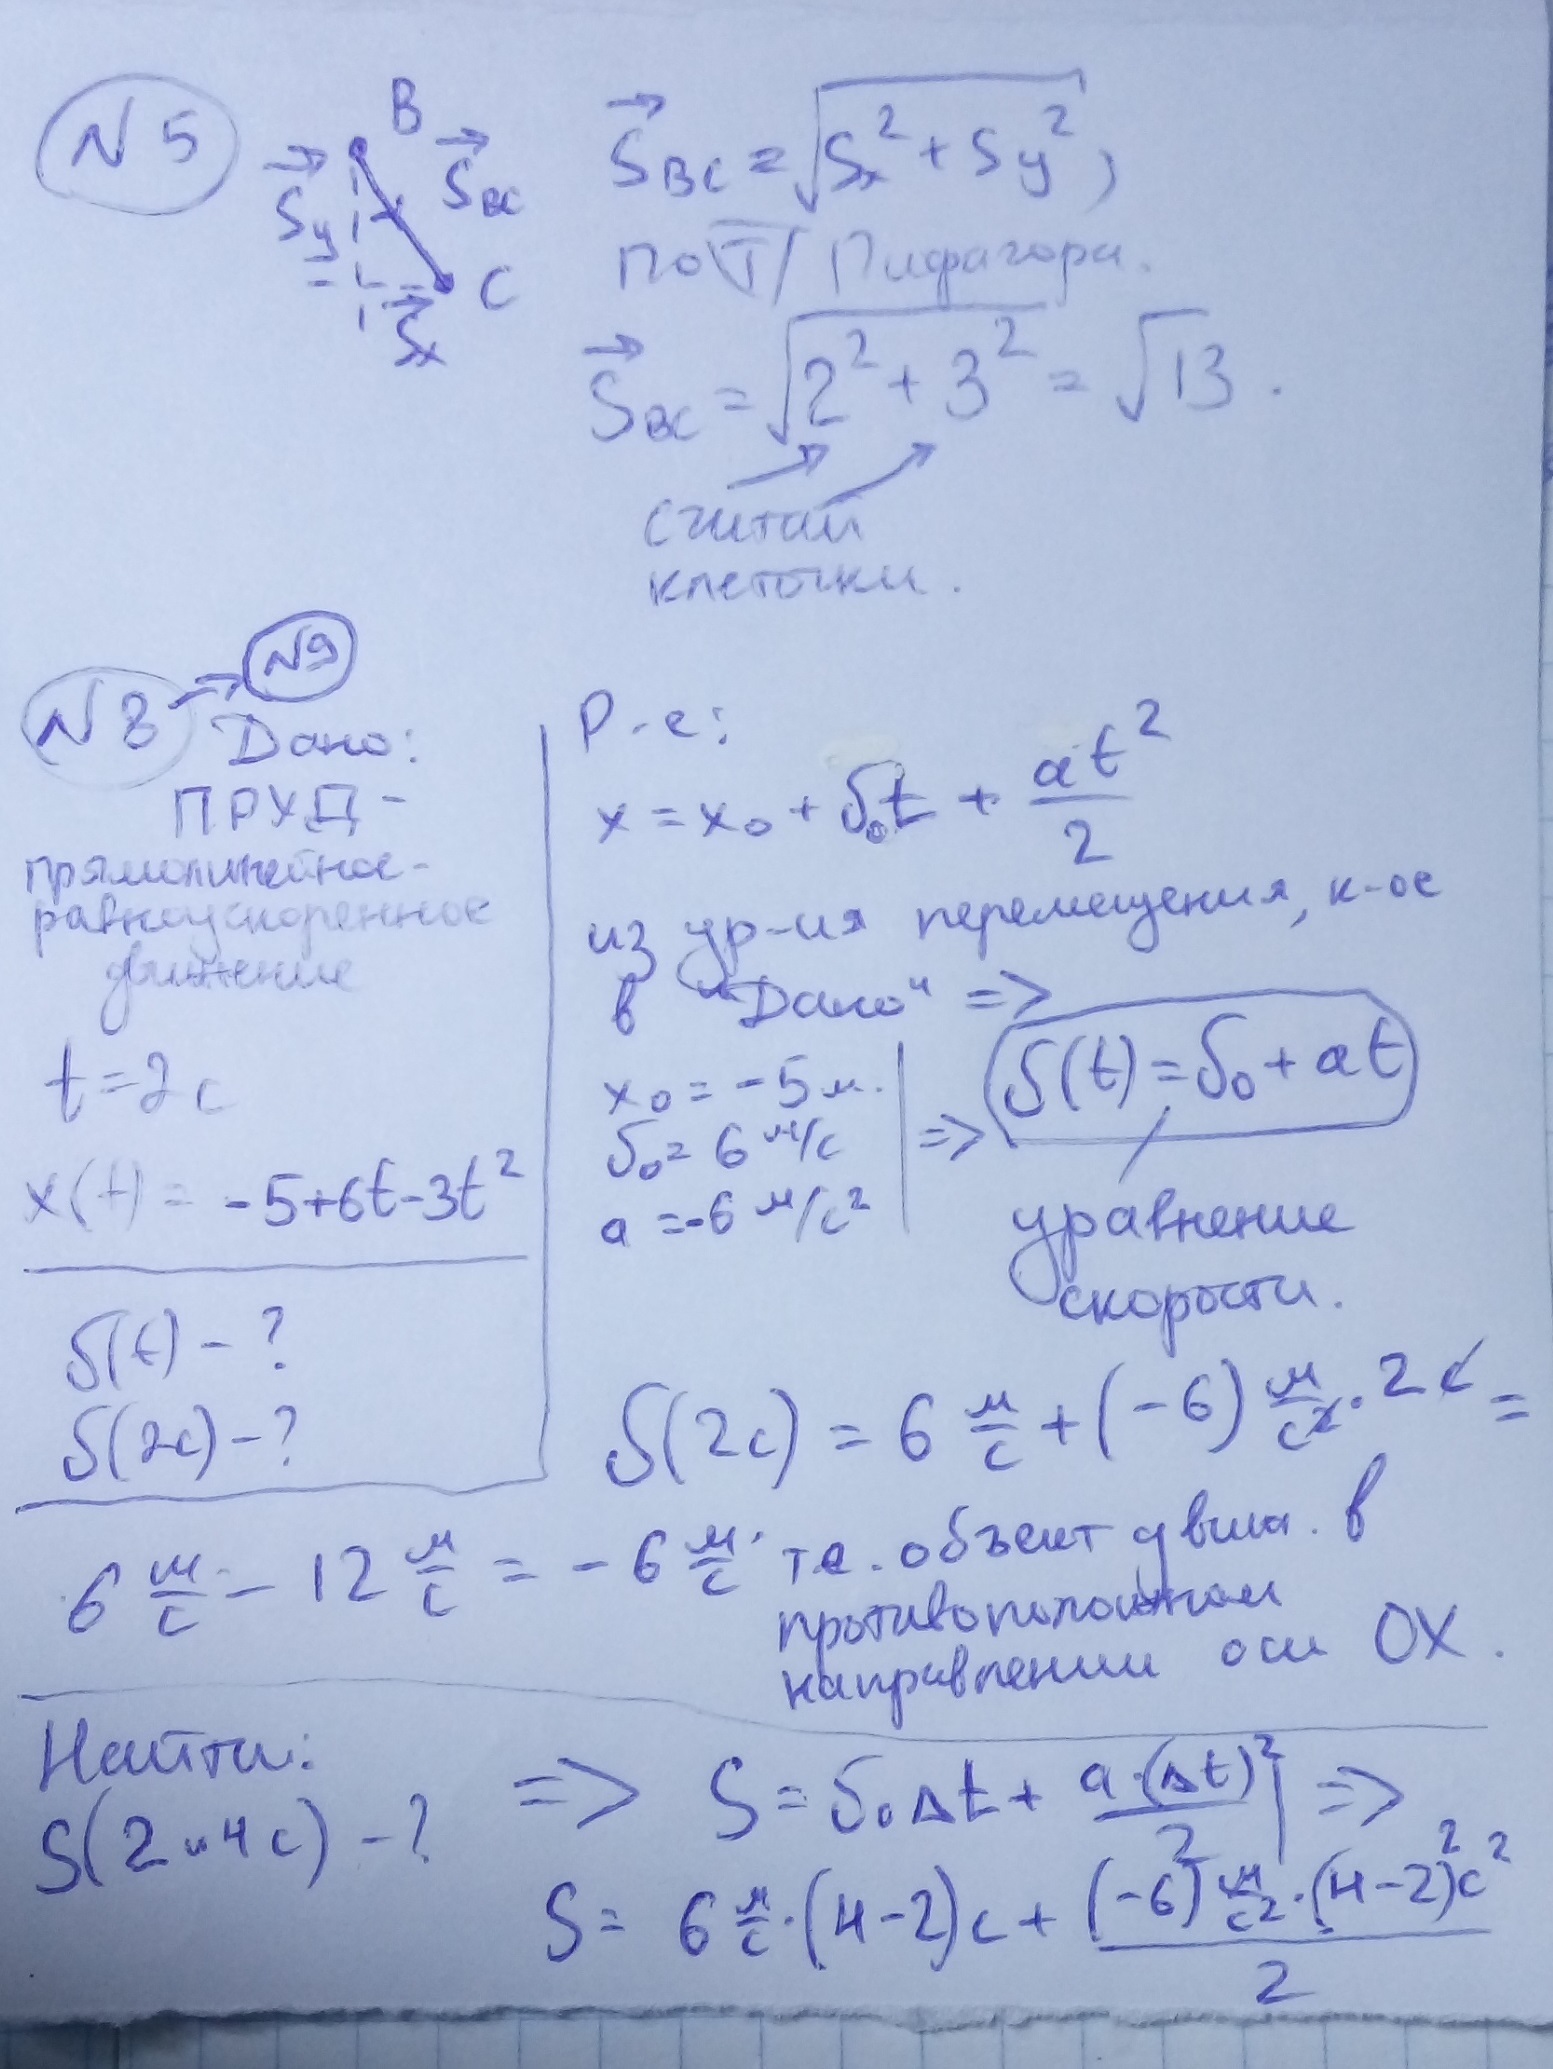 N 5
B
S⃗y
S⃗вс
C
S⃗x
S⃗вс = √(Sx² + Sy²),
по T/ Пифагора.
S⃗вс = √(2² + 3²) = √13.
считай
клеточки.
N 8 → N9
Дано:
ПРУД -
прямолинейное-
равноускоренное
движение
t = 2с
x(t) = -5+6t-3t²
υ(t) - ?
υ(2с) - ?
Р-е:
x = x₀ + υ₀t + at²/2
из ур-ия перемещения, к-ое
в "Дано" =>
x₀ = -5 м.
υ₀ = 6 м/с
a = -6 м/с²
=> υ(t) = υ₀ + at
уравнение
скорости.
υ(2с) = 6 м/с + (-6) м/с² · 2 с =
6 м/с - 12 м/с = -6 м/с. т.е. объект движ. в
противоположном
направлении оси OX.
Найти:
S(2 и 4с) - ?
=> S = υ₀Δt + a·(Δt)²/2 | =>
S = 6 м/с · (4-2)с + (-6) м/с² · (4-2)²с²/2